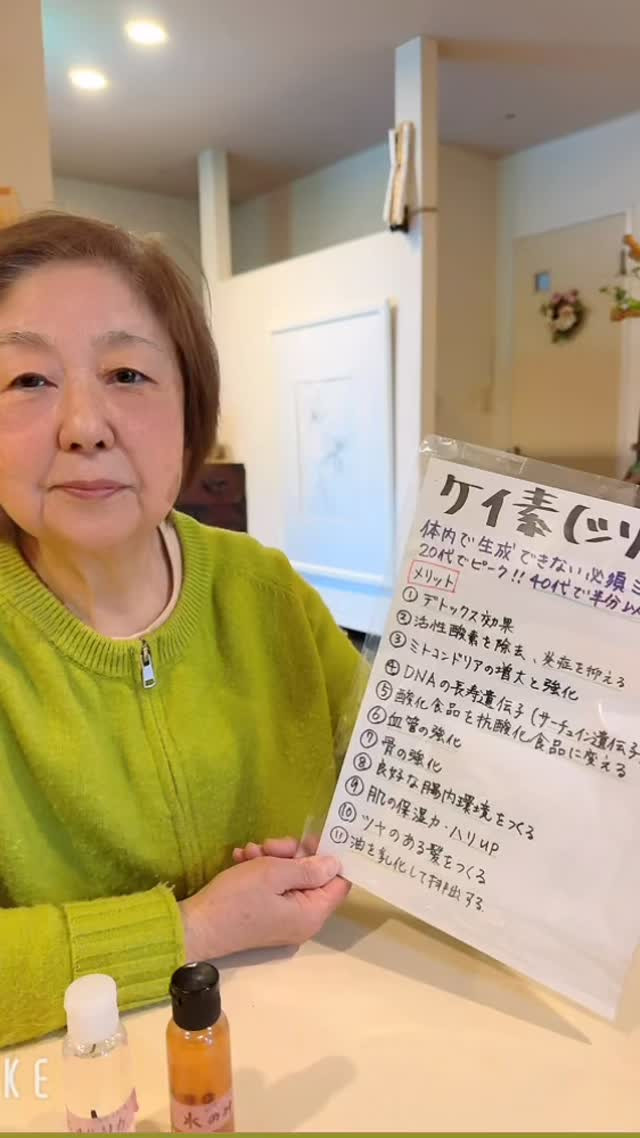 ケイ素(シリ
体内で生成できない必須ミ
20代でピーク!! 40代で半分以
メリット
① デトックス効果
② 活性酸素を除去、炎症を抑える
③ ミトコンドリアの増大と強化
④ DNAの長寿遺伝子(サーチュイン遺伝子
⑤ 酸化食品を抗酸化食品に変える
⑥ 血管の強化
⑦ 骨の強化
⑧ 良好な腸内環境をつくる
⑨ 肌の保湿力・ハリUP
⑩ ツヤのある髪をつくる
⑪ 油を乳化して排出する.
KE
水の